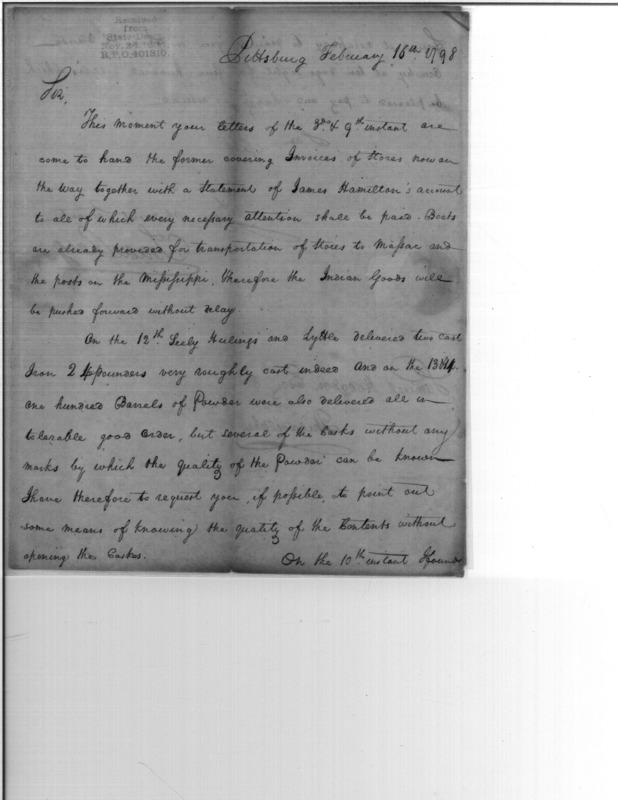 Received
from
State Dept.
Nov. 24
R.P.O. 401810.
Pittsburg February 16th 1798
Sir,
This moment your letters of the 3d. & 9th instant are
come to hand the former covering Invoices of Stores now on
the way together with a Statement of James Hamilton's account
to all of which every necessary attention shall be paid. Boats
are already provided for transportation of Stores to Massac and
the posts on the Mississippi, therefore the Indian Goods will
be pushed forward without delay.
On the 12th Seely Hulings and Lyttle delivered two cast
Iron 2 pounders very roughly cast indeed and on the 13th
one hundred Barrels of Powder were also delivered all in
tolarable good order, but several of the Casks without any
marks by which the quality of the Powder can be known
I have therefore to request you, if possible, to point out
some means of knowing the quality of the Contents without
opening the Casks.
On the 10th instant I found